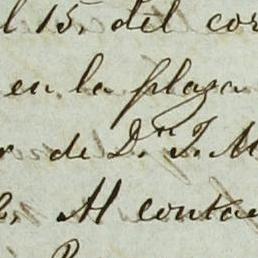 15. del cor
en la plaza
r de D.n J. M
Al contae